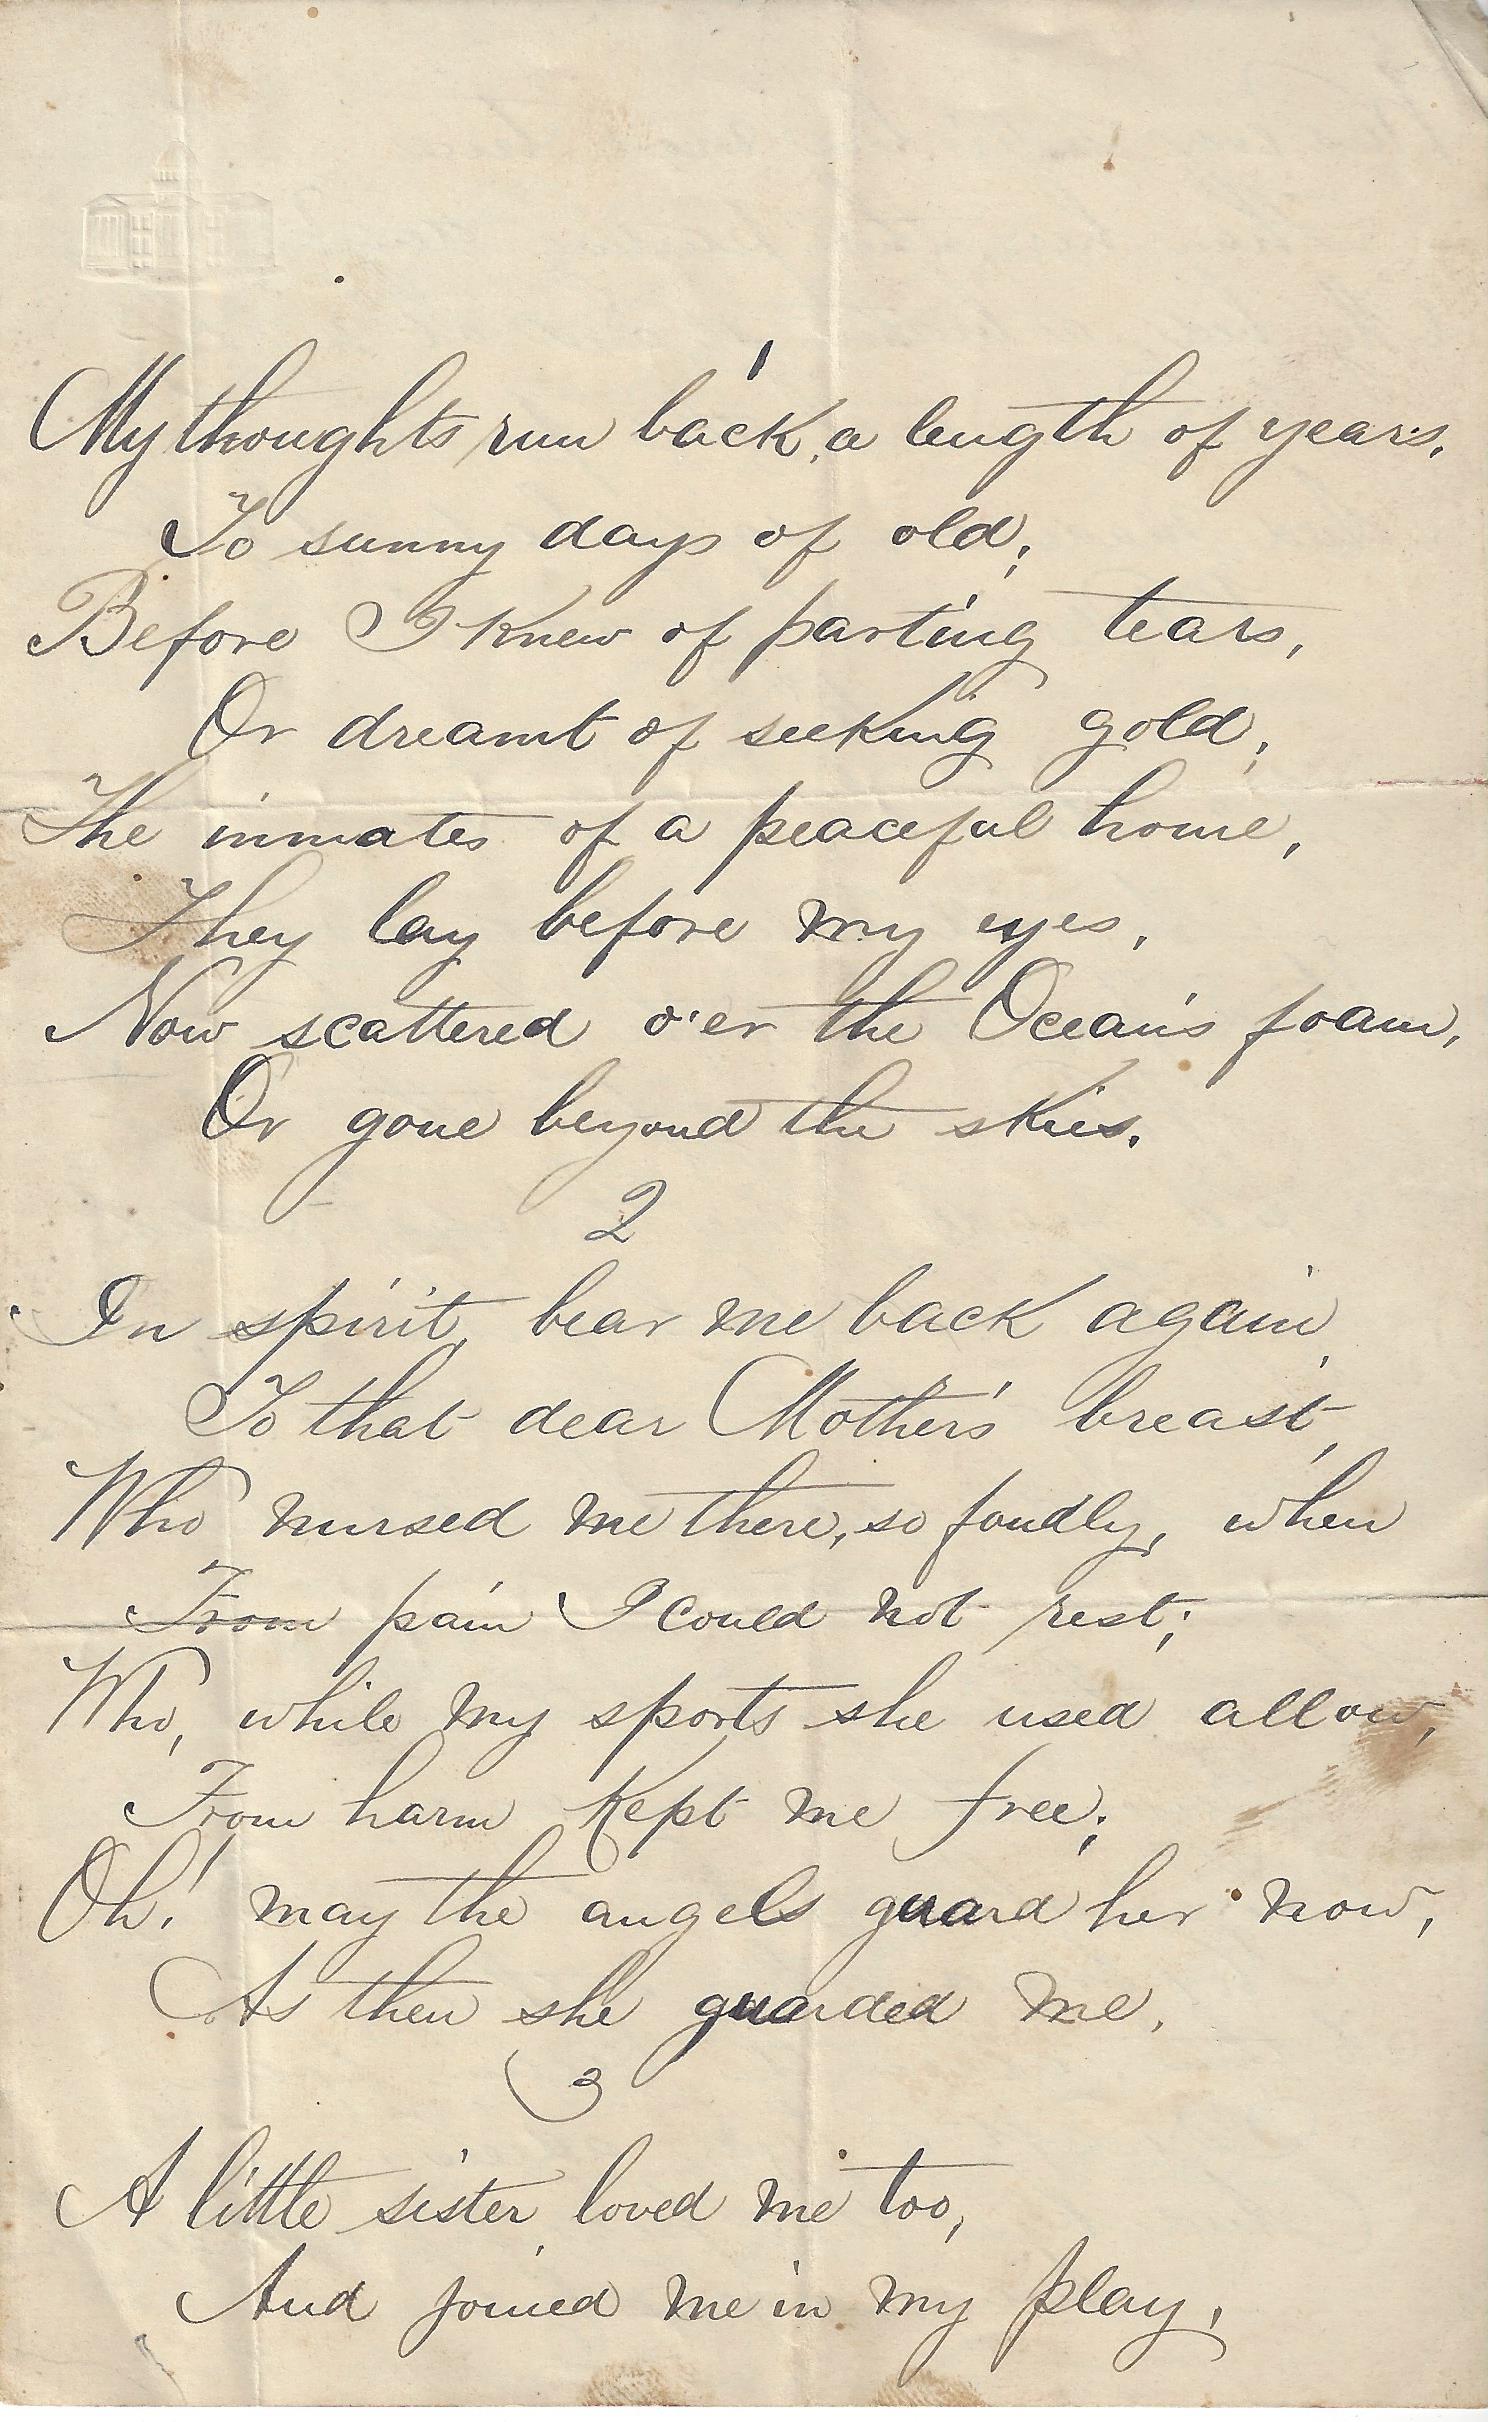 1
My thoughts run back, a length of years,
To sunny days of old;
Before I knew of parting tears,
Or dreamt of seeking gold;
The inmates of a peaceful home,
They lay before my eyes,
Now scattered o'er the Ocean's foam,
Or gone beyond the skies.
2
In spirit, bear me back again,
To that dear Mother's breast,
Who nursed me there, so fondly, when
From pain I could not rest;
Who, while my sports she used allow,
From harm kept me free;
Oh! may the angels guard her now,
As then she guarded me.
3
A little sister, loved me too,
And joined me in my play,